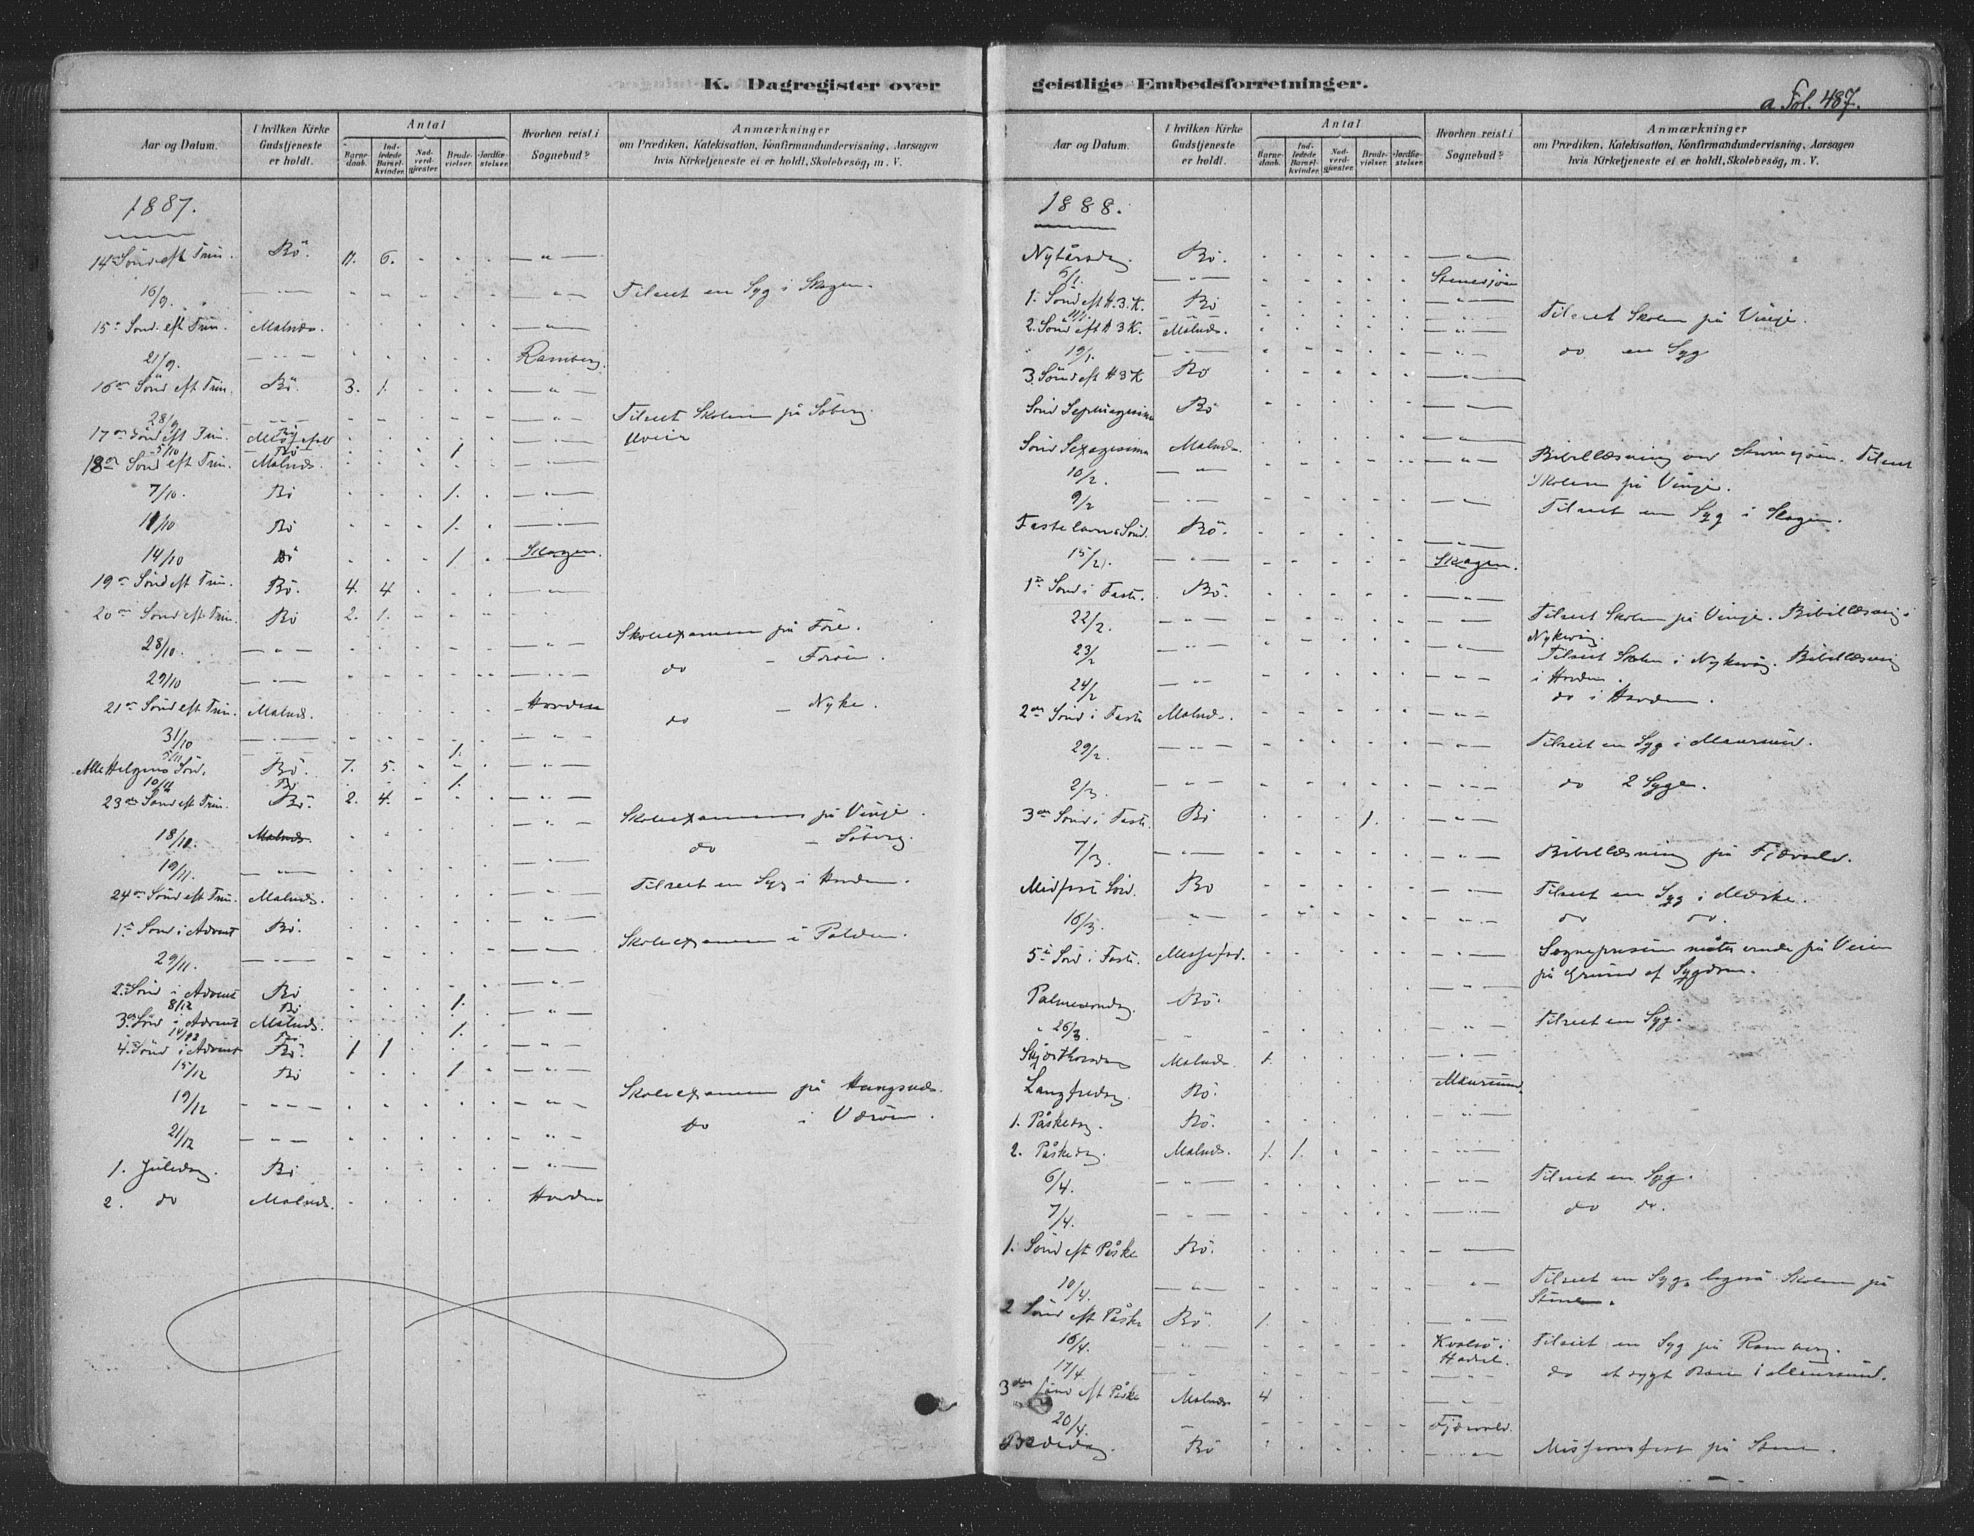 K. Dagregister over geistlige Embedsforretninger.
a. Fol. 487.
Aar og Datum.
I hvilken Kirke Gudstjeneste er holdt.
Antal
Barnedaab.
Indledede Barselkvinder.
Nadverdgjester.
Brudevielser.
Jordfæstelser.
Hvorhen reist i Sognebud?
Anmærkninger
om Prædiken, Katekisation, Konfirmandundervisning, Aarsagen
hvis Kirketjeneste ei er holdt, Skolebesøg, m. V.
1887.
14de Sönd. eft Trin. Bö. 11. 6.
16/9. Tilseet en Syg i Skagen.
15de Sönd. eft Trin. Malnes.
21/9. Ramberg.
16de Sönd eft Trin. Bö. 3. 1.
28/9 Tilseet Skolen på Söberg.
17de Sönd eft Trin. Messefald Uveir
5/10 Bö 1.
18de Sönd eft Trin. Malnes.
7/10. Bö 1.
11/10 Bö 1.
14/10 Bö 1. Skagen.
19de Sönd eft Trin. Bö. 4. 4
20de Sönd eft Trin. Bö 2. 1.
28/10. Skoleexamen på Före.
29/10 do
21de Sönd eft Trin. Malnes. Hovden
do - Nyke.
31/10
5/11 1.
Alle Helgens Sönd. Bö. 7. 5.
10/11 Bö 1.
23de Sönd eft Trin. Bö. 2. 4.
18/10. Malnes. Skoleexamen på Vinje.
19/11. do - Söberg.
24de Sönd eft Trin. Malnes. Tilseet en Syg i Hovden.
1ste Sönd i Advent Bö.
29/11. Skoleexamen i
2. Sönd i Advent Bö
8/12 Bö 1.
3de Sönd i Advent Malnes.
14/12 Bö 1.
4. Sönd i Advent Bö. 1 1
15/12 Bö 1.
19/12 Skoleexamen på
21/12 do i
1. Juledag. Bö
2. do Malnes. Hovden
Aar og Datum.
I hvilken Kirke Gudstjeneste er holdt.
Antal
Barnedaab.
Indledede Barselkvinder.
Nadverdgjester.
Brudevielser.
Jordfæstelser.
Hvorhen reist i Sognebud?
Anmærkninger
om Prædiken, Katekisation, Konfirmandundervisning, Aarsagen
hvis Kirketjeneste ei er holdt, Skolebesög, m. V.
1888.
Nytårsdag Bö.
5/1.
1. Sönd eft H. 3. K. Bö
11/1. Tilseet Skolen på Vinje.
2. Sönd eft H 3 K. Malnes.
19/1. do en Syg
3. Sönd eft H 3 K Bö
Sönd Septuagesima Bö
Sönd Sexagesima Malnes.
10/2. Skolen på Vinje.
9/2 Tilseet en Syg i Skagen.
Fastelavns Sönd. Bö.
15/2. Skagen.
1ste Sönd i Faste. Bö.
22/2. Tilseet Skolen på Vinje. Bibellæsning i Nykvåg.
23/2 Tilseet Skolen i Nykvåg. Bibellæsning i Hovden.
24/2 do i Hovden.
2den Sönd i Faste Malnes.
29/2. Tilseet en Syg i Maursund.
2/3. do 2 Syge.
3die Sönd i Faste. Bö 1.
7/3. Bibellæsning på Fjærvold.
Midfaste Sönd. Bö Tilseet en Syg i
16/3. do do.
5te Sönd i Faste. Messefald. Sognepresten måtte vende på Veien
på Grund af Sygdom.
Palmesöndag Bö.
26/3. Tilseet en Syg.
Skjærtorsdag Malnes 1.
Langfredag. Bö. Maursund
1. Påskedag. Bö.
2. Påskedag. Malnes. 1. 1.
6/4. Tilseet en Syg.
7/4. do do.
1. Sönd eft Påske Bö.
10/4. Tilseet en Syg, ligeså Skolen på
Stene.
2 Sönd eft Påske Bö. 1.
16/4. Kvalsö i Hadsel. Tilseet en Syg på Ramberg.
17/4 do et sygt Barn i Maursund.
3die Sönd eft Påske Malnes 4
20/4. Fjærvold.
Bededag. Bö Missionsfest på Stene.